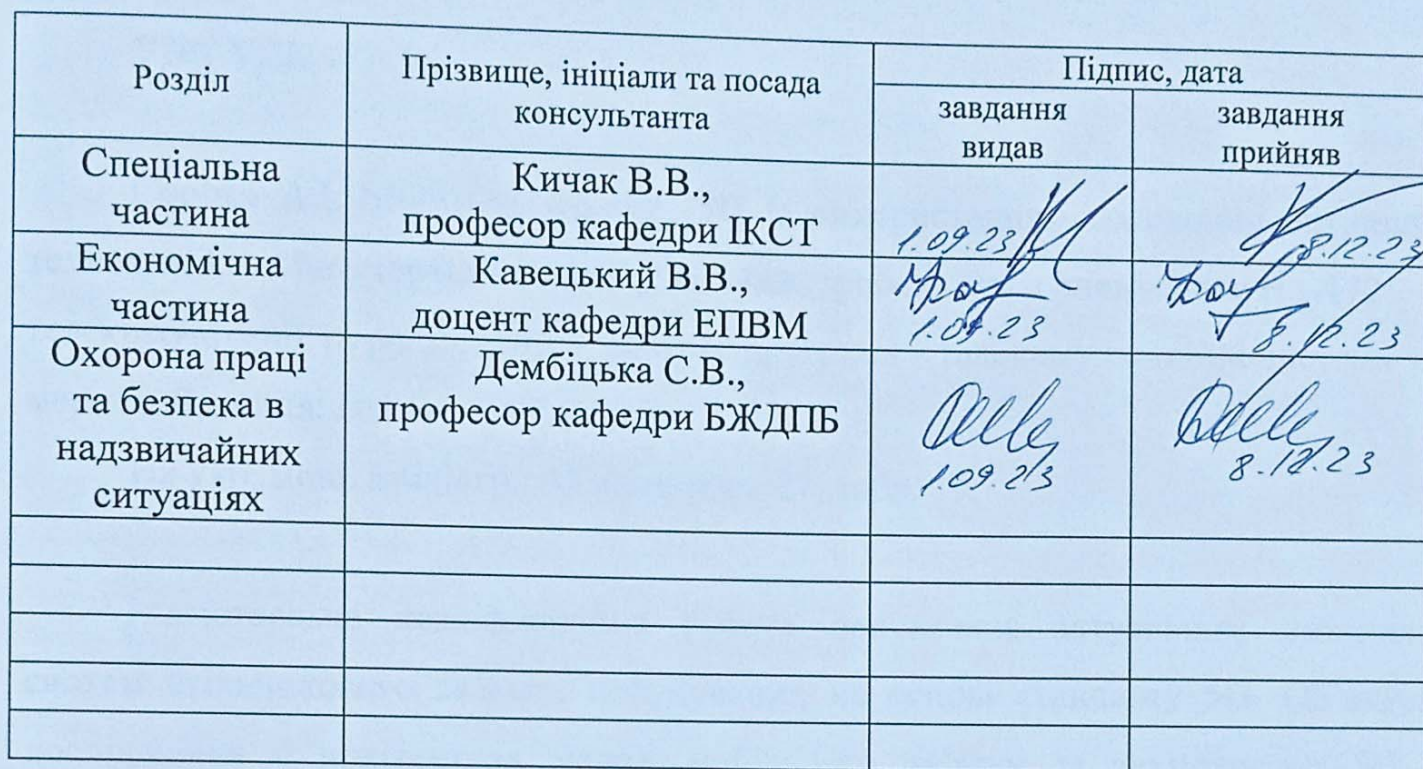 Розділ
Прізвище, ініціали та посада
консультанта
Підпис, дата
завдання
видав
завдання
прийняв
Спеціальна
частина
Кичак В.В.,
професор кафедри ІКСТ
1.09.23
8.12.23
Економічна
частина
Кавецький В.В.,
доцент кафедри ЕПВМ
1.09.23
8.12.23
Охорона праці
та безпека в
надзвичайних
ситуаціях
Дембіцька С.В.,
професор кафедри БЖДПБ
1.09.23
8.12.23